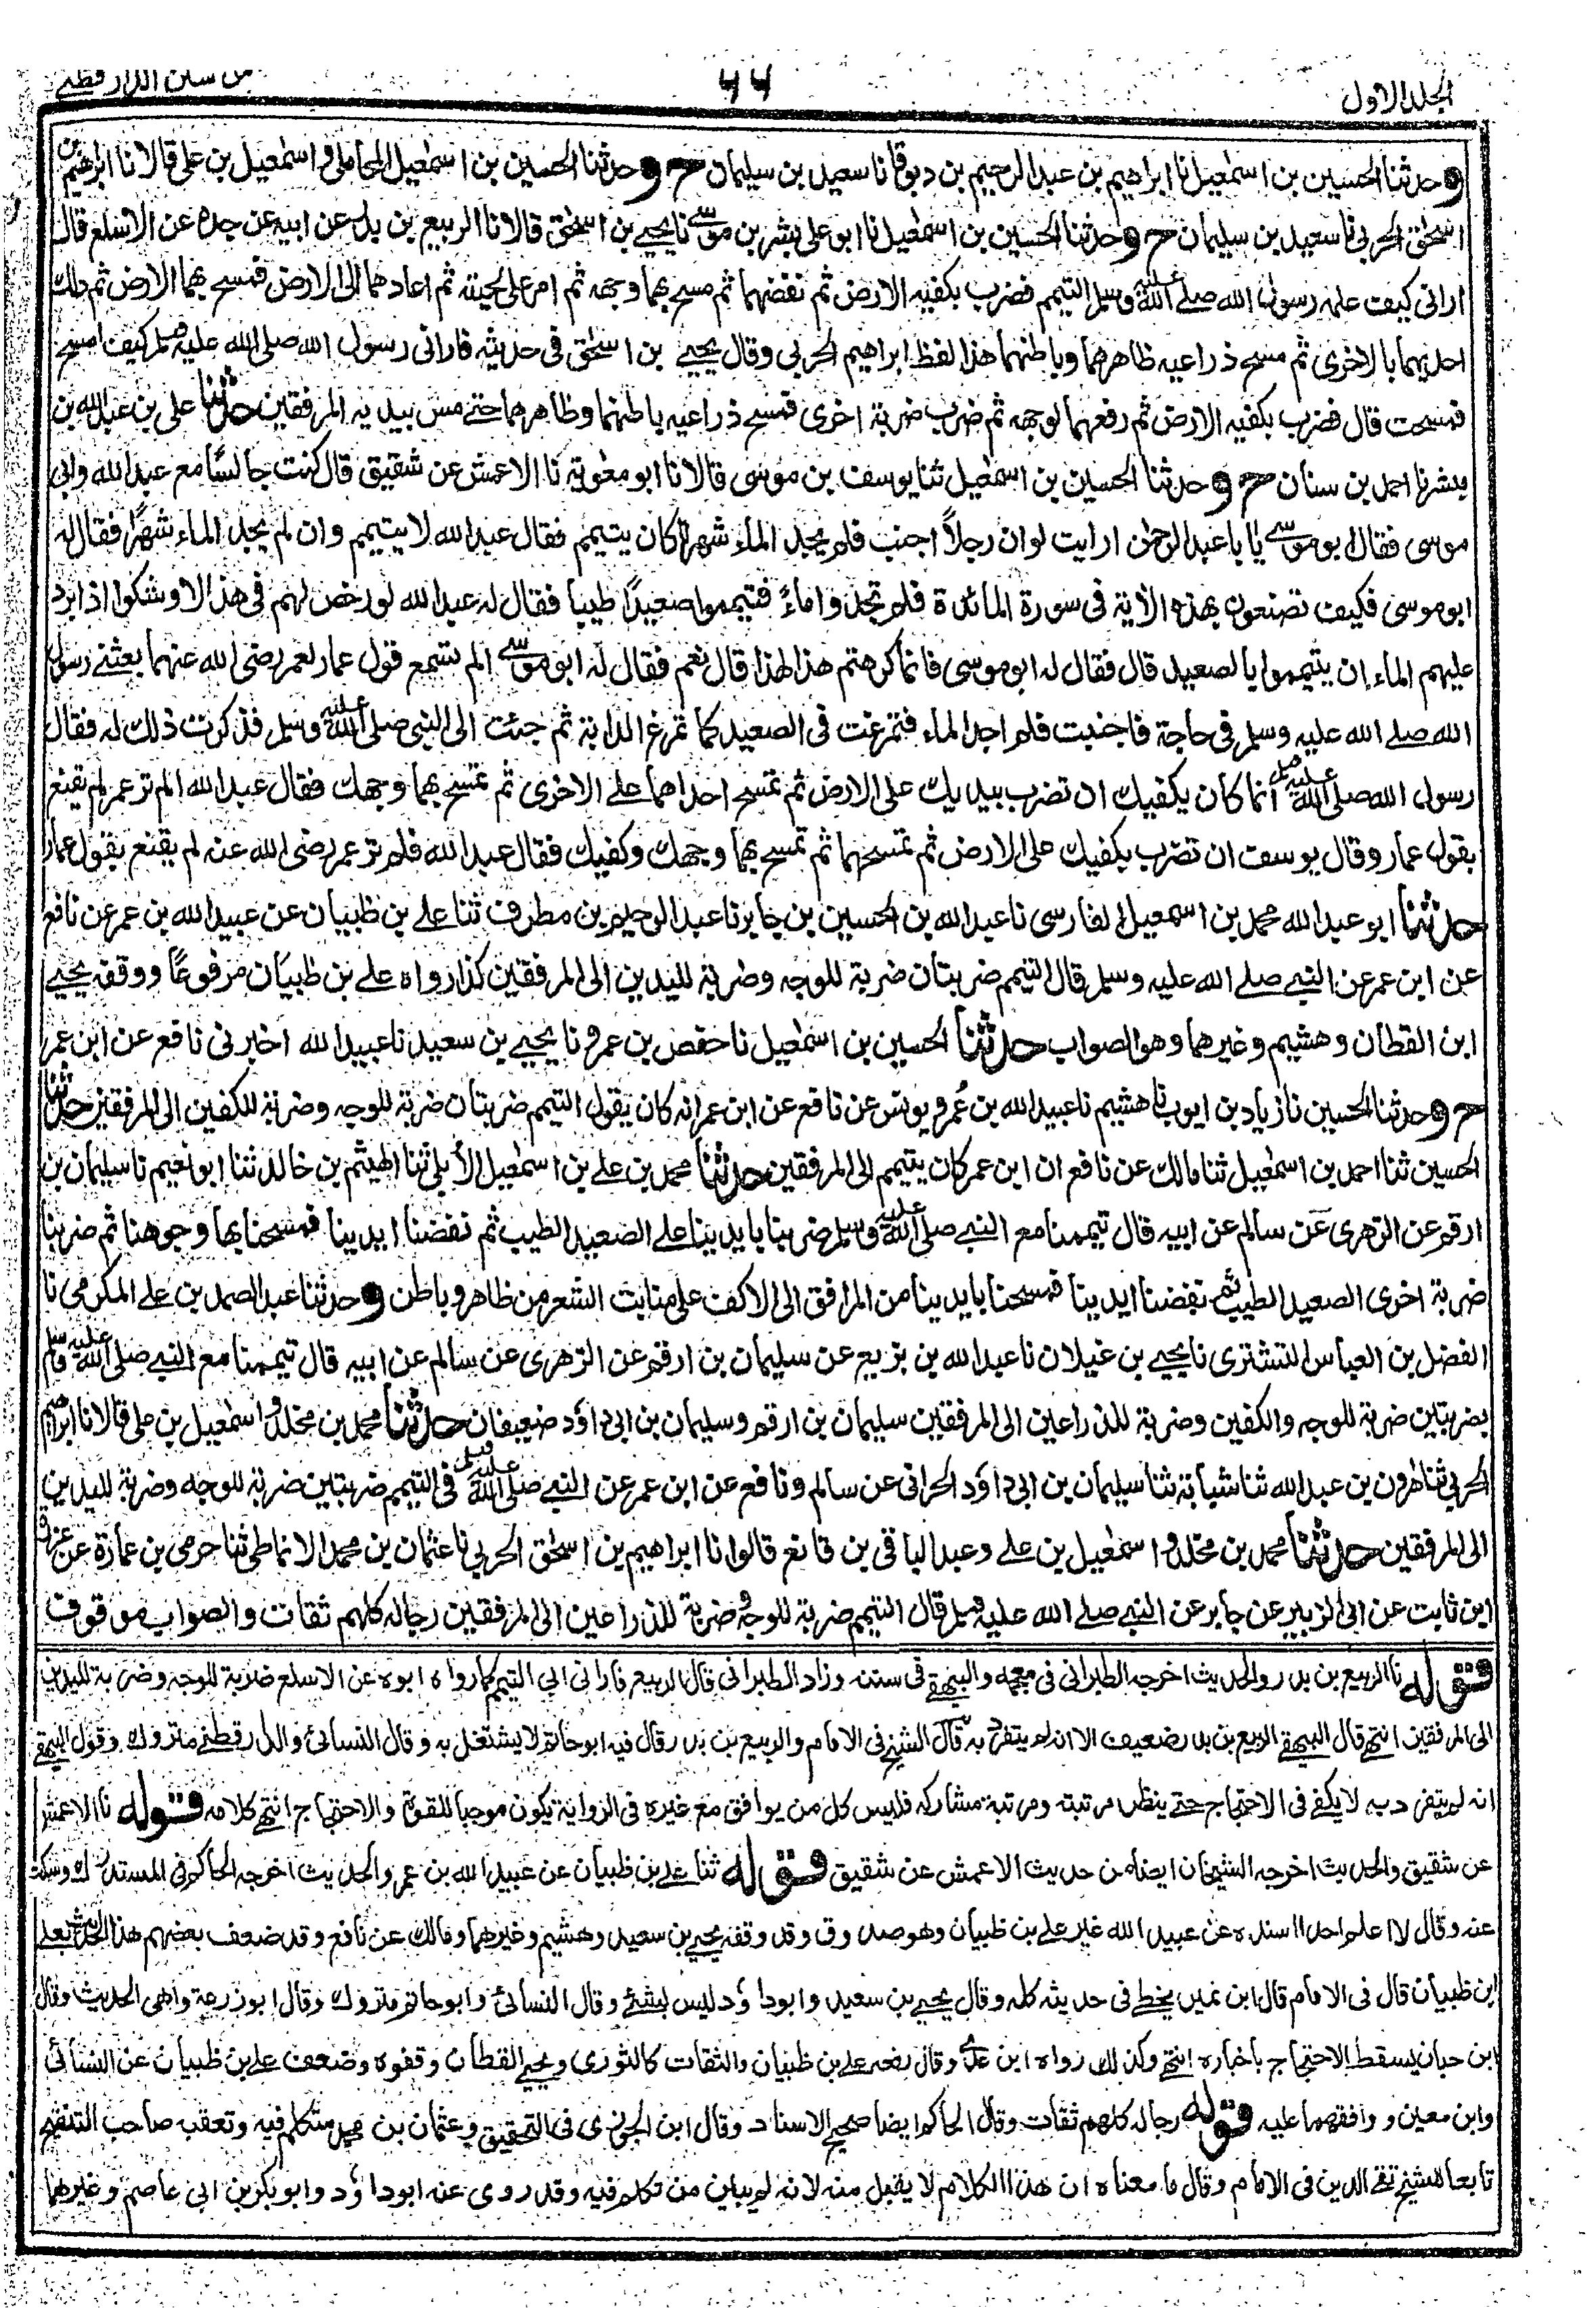 الجلد الاول
٦٦
من سنن الدارقطنے
وحدثنا الحسين بن اسمٰعيل نا ابراهيم بن عبد الرحيم بن دنوقا نا سعيد بن سليمان ح وحدثنا الحسين بن اسمٰعيل المحاملى و اسمٰعيل بن على قالا نا ابراهيم بن
اسحٰق الحربى نا سعيد بن سليمان ح وحدثنا الحسين بن اسمٰعيل نا ابو على بشر بن موسٰے نا يحيے بن اسحٰق قالا نا الربيع بن بدر عن ابيه عن جده عن الاسلع قال
ارانى كيف علمه رسول الله صلے الله عليه وسلم التيمم فضرب بكفيه الارض ثم نفضهما ثم مسح بهما وجهه ثم امر على لحيته ثم اعادهما الى الارض فمسح بهما الارض ثم دلك
احديهما بالاخرى ثم مسح ذراعيه ظاهرهما وباطنهما هذا لفظ ابراهيم الحربى وقال يحيے بن اسحٰق فى حديثه فارانى رسول الله صلى الله عليه وسلم كيف امسح
فمسحت قال فضرب بكفيه الارض ثم رفعهما لوجهه ثم ضرب ضربة اخرى فمسح ذراعيه باطنهما وظاهرهما حتے مس بيديه المرفقين حدثنا على بن عبد الله بن
مبشر نا احمد بن سنان ح وحدثنا الحسين بن اسمٰعيل ثنا يوسف بن موسى قالا نا ابو معٰوية نا الاعمش عن شقيق قال كنت جالسًا مع عبد الله وابى
موسى فقال ابو موسٰے يا با عبد الرحمٰن ارايت لو ان رجلاً اجنب فلم يجد الماء شهرا اكان يتيمم فقال عبد الله لا يتيمم وان لم يجد الماء شهرًا فقال له
ابو موسى فكيف تصنعون بهذه الاية فى سورة المائدة فلم تجدوا ماءً فتيمموا صعيدًا طيبا فقال له عبد الله لو رخص لهم فى هذا لاوشكوا اذا برد
عليهم الماء ان يتيمموا بالصعيد قال فقال له ابو موسى فانما كرهتم هذا لهذا قال نعم فقال له ابو موسٰے الم تسمع قول عمار لعمر رضى الله عنهما بعثنے رسول
الله صلے الله عليه وسلم فى حاجة فاجنبت فلم اجد الماء فتمرغت فى الصعيد كما تمرغ الدابة ثم جئت الى النبى صلى الله عليه وسلم فذكرت ذلك له فقال
رسول الله صلى الله عليه وسلم انما كان يكفيك ان تضرب بيديك على الارض ثم تمسح احداهما علے الاخرى ثم تمسح بهما وجهك فقال عبد الله الم تر عمر لم يقنع
بقول عمار وقال يوسف ان تضرب بكفيك على الارض ثم تمسحهما ثم تمسح بهما وجهك وكفيك فقال عبد الله فلم تر عمر رضى الله عنه لم يقنع بقول عمار
حدثنا ابو عبد الله محمد بن اسمعيل الفارسى نا عبد الله بن الحسين بن جابر نا عبد الرحيم بن مطرف ثنا علے بن ظبيان عن عبيد الله بن عمر عن نافع
عن ابن عمر عن النبے صلے الله عليه وسلم قال التيمم ضربتان ضربة للوجه وضربة لليدين الى المرفقين كذا رواه علے بن ظبيان مرفوعًا ووقفه يحيے
ابن القطان وهشيم وغيرهما وهو الصواب حدثنا الحسين بن اسمٰعيل نا حفص بن عمرو نا يحيے بن سعيد نا عبيد الله اخبرنى نافع عن ابن عمر
ح وحدثنا الحسين نا زياد بن ايوب نا هشيم نا عبيد الله بن عُمر ويونس عن نافع عن ابن عمر انه كان يقول التيمم ضربتان ضربة للوجه وضربة للكفين الى المرفقين حدثنا
الحسين ثنا احمد بن اسمٰعيل ثنا مالك عن نافع ان ابن عمر كان يتيمم الى المرفقين حدثنا محمد بن علے بن اسمٰعيل الأبلى ثنا الهيثم بن خالد ثنا ابو نعيم نا سليمان بن
ارقم عن الزهرى عن سالم عن ابيه قال تيممنا مع النبے صلى الله عليه وسلم ضربنا بايدينا على الصعيد الطيب ثم نفضنا ايدينا فمسحنا بها وجوهنا ثم ضربنا
ضربة اخرى الصعيد الطيب ثم نفضنا ايدينا فمسحنا بايدينا من المرافق الى الاكف على منابت الشعر من ظاهر وباطن وحدثنا عبد الصمد بن علے المكرمى نا
الفضل بن العباس التسترى نا يحيے بن غيلان نا عبد الله بن بزيع عن سليمان بن ارقم عن الزهرى عن سالم عن ابيه قال تيممنا مع النبے صلى الله عليه وسلم
بضربتين ضربة للوجه والكفين وضربة للذراعين الى المرفقين سليمان بن ارقم وسليمان بن ابى داؤد ضعيفان حدثنا محمد بن مخلد و اسمٰعيل بن على قالا نا ابراهيم
الحربى ثنا هٰرون بن عبد الله ثنا شبابة ثنا سليمان بن ابى داؤد الحرانى عن سالم ونافع عن ابن عمر عن النبے صلى الله عليه وسلم فى التيمم ضربتين ضربة للوجه وضربة لليدين
الى المرفقين حدثنا محمد بن مخلد و اسمٰعيل بن علے وعبد الباقى بن قانع قالوا نا ابراهيم بن اسحٰق الحربى نا عثمان بن محمد الانماطى ثنا حرمى بن عمارة عن عزرة
ابن ثابت عن ابى الزبير عن جابر عن النبے صلے الله عليه وسلم قال التيمم ضربة للوجه وضربة للذراعين الى المرفقين رجاله كلهم ثقات والصواب موقوف
قوله نا الربيع بن بدر والحديث اخرجه الطبرانى فى معجمه والبيهقے فى سننه وزاد الطبرانى قال الربيع فارانى ابى التيمم كما رواه ابوه عن الاسلع ضربة للوجه وضربة لليدين
الى المرفقين انتهے قال البيهقے الربيع بن بدر ضعيف الا انه لم يتفرد به قال الشيخ فى الامام والربيع بن بدر قال فيه ابو حاتم لا يشتغل به وقال النسائى والدارقطنے متروك وقول البيهقے
انه لم يتفرد به لا يكفے فى الاحتجاج حتے ينظر مرتبته ومرتبة مشاركه فليس كل من يوافق مع غيره فى الرواية يكون موجبا للقوة والاحتجاج انتهے كلامه قوله نا الاعمش
عن شقيق والحديث اخرجه الشيخان ايضا من حديث الاعمش عن شقيق قوله ثنا علے بن ظبيان عن عبيد الله بن عمر والحديث اخرجه الحاكم فى المستدرك وسكت
عنه وقال لا اعلم احدا اسنده عن عبيد الله غير علے بن ظبيان وهو صدوق وقد وقفه يحيے بن سعيد وهشيم وغيرهما ومالك عن نافع وقد ضعف بعضهم هذا الحديث بعلے
ابن ظبيان قال فى الامام قال ابن نمير يخطے فى حديثه كله وقال يحيے بن سعيد وابو داؤد ليس بشئے وقال النسائى وابو حاتم متروك وقال ابو زرعة واهى الحديث وقال
ابن حبان يسقط الاحتجاج باخباره انتهے وكذلك رواه ابن عدے وقال رفعه علے بن ظبيان والثقات كالثورى ويحيے القطان وقفوه وضعف علے بن ظبيان عن النسائى
وابن معين ووافقهما عليه قوله رجاله كلهم ثقات وقال الحاكم ايضا صحيح الاسناد وقال ابن الجوزى فى التحقيق وعثمان بن محمد متكلم فيه وتعقبه صاحب التنقيح
تابعا للشيخ تقے الدين فى الامام وقال ما معناه ان هذا الكلام لا يقبل منه لانه لم يبين من تكلم فيه وقد روى عنه ابو داؤد وابو بكر بن ابى عاصم وغيرهما